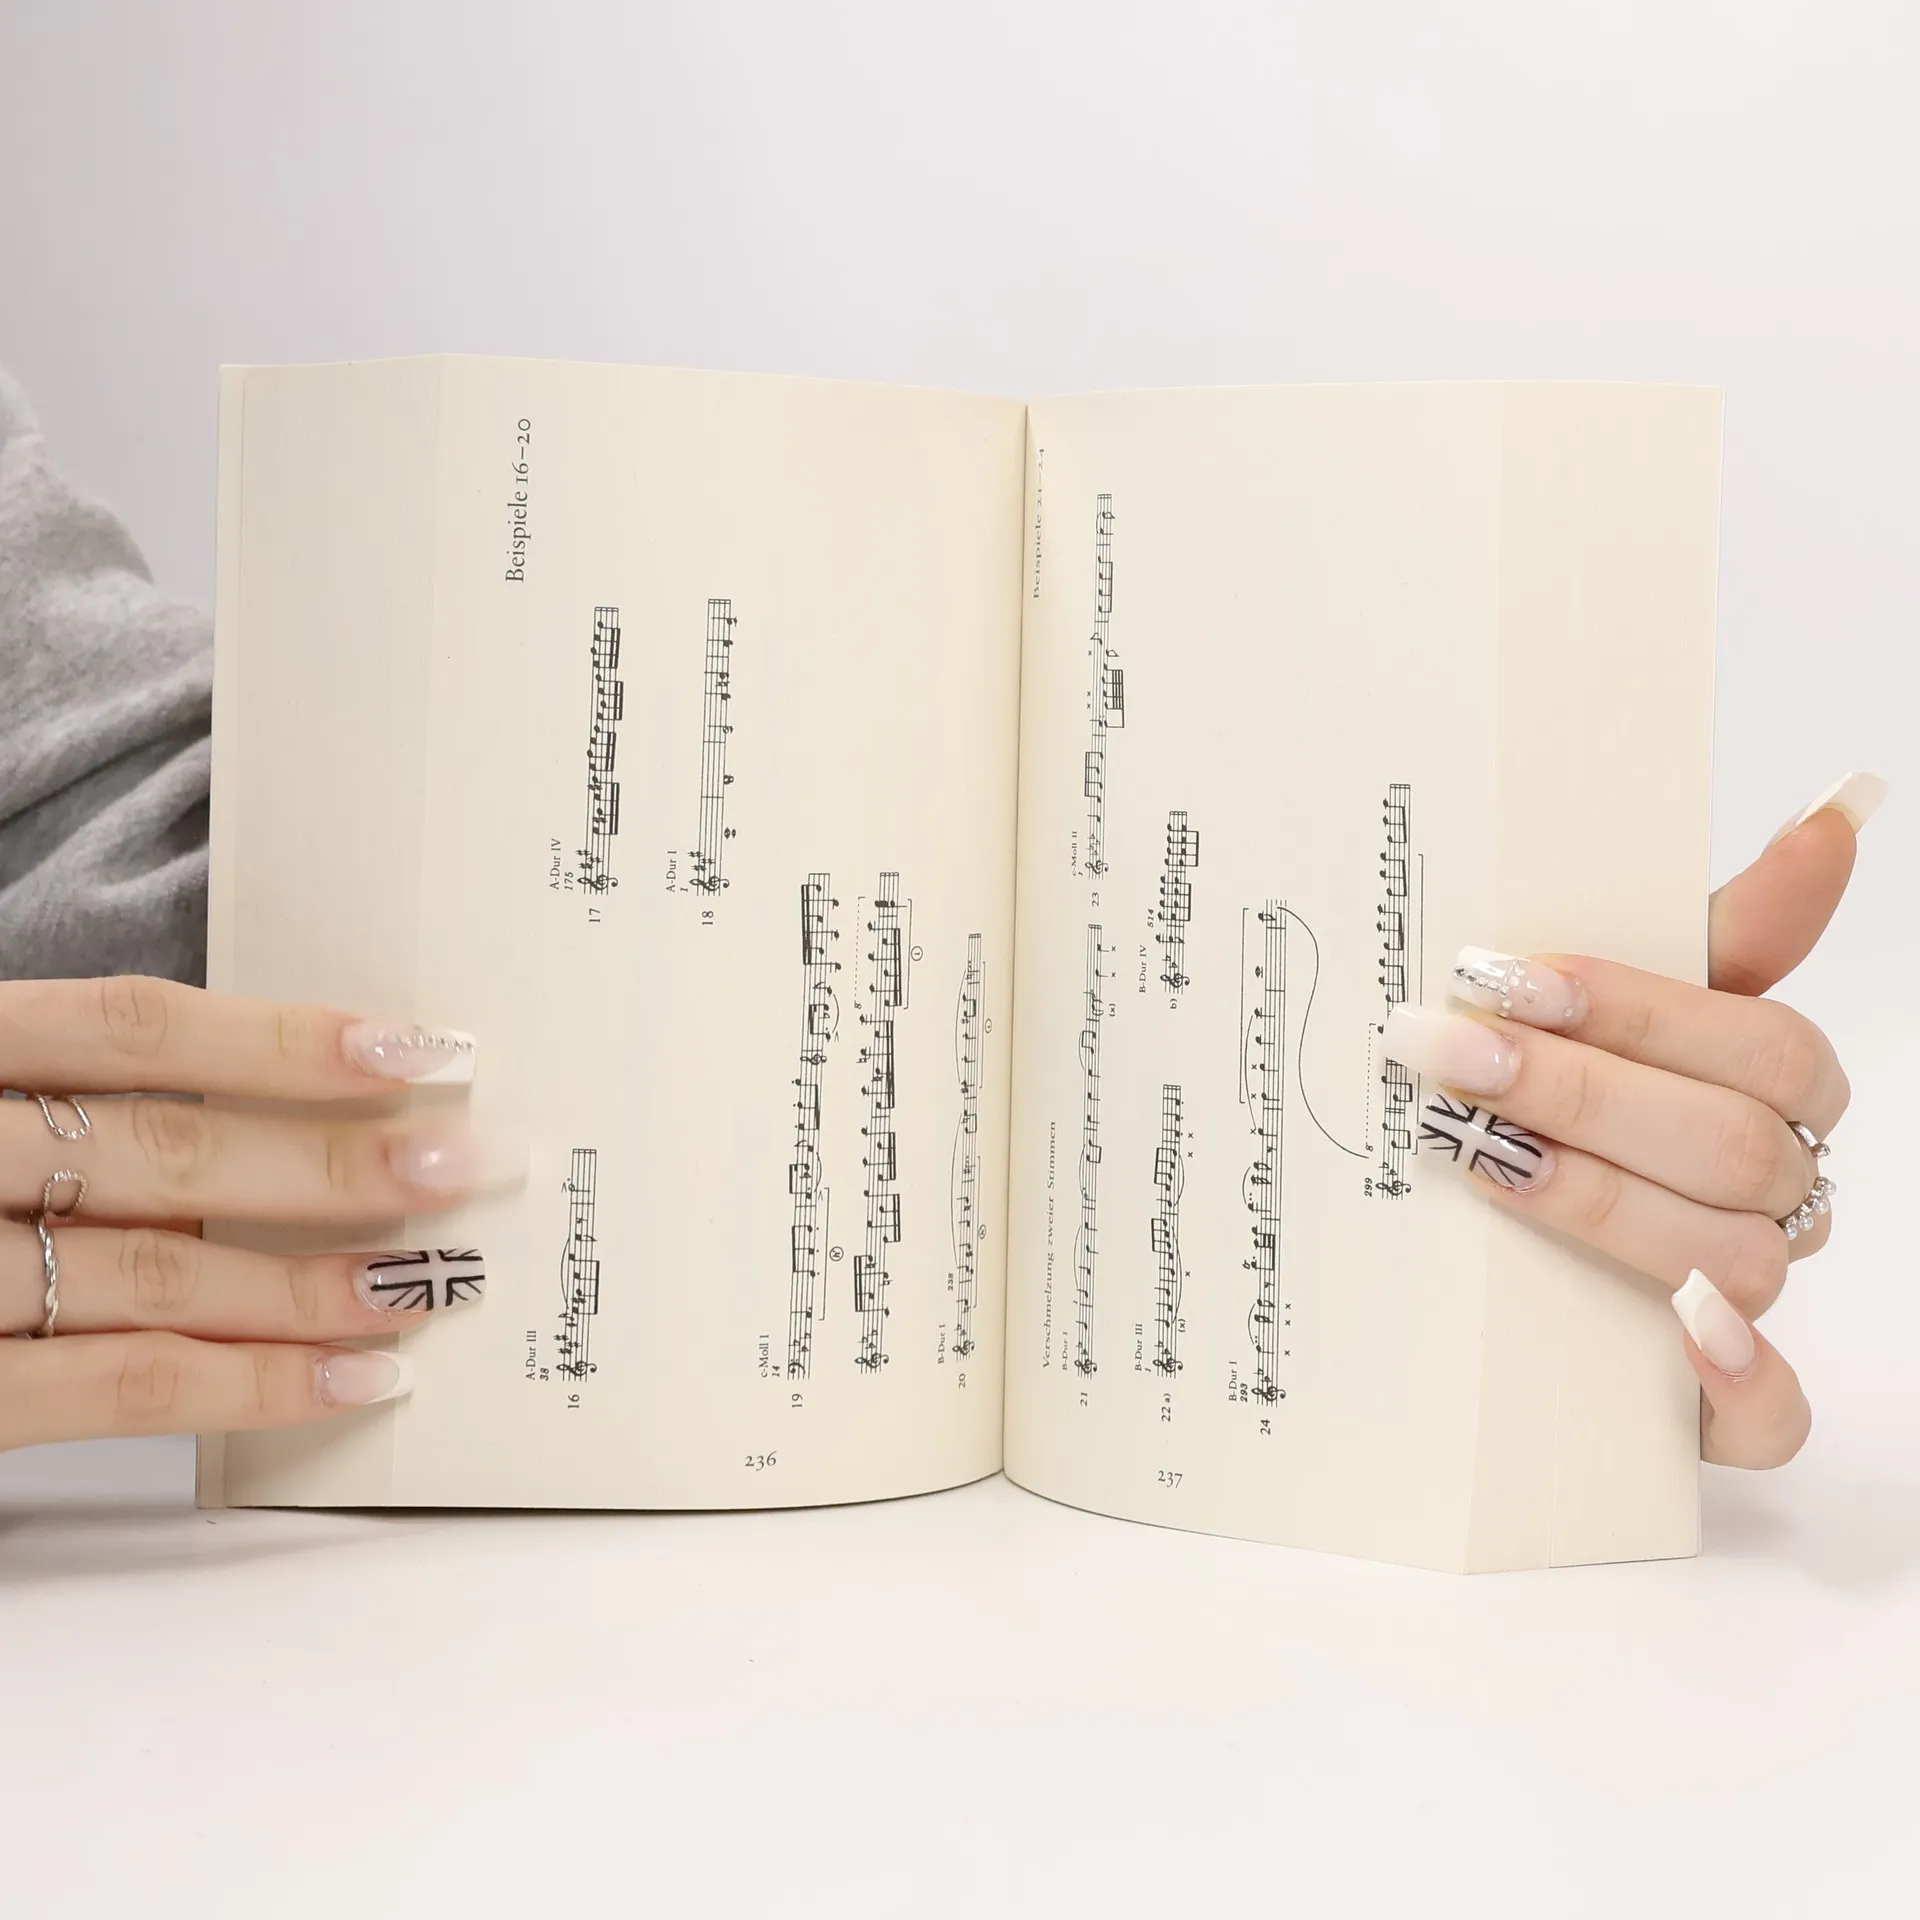 Beispiele 16–20
A-Dur III
38
16
A-Dur IV
175
17
A-Dur I
1
18
c-Moll I
14
19
8
N
1
B-Dur I
238
20
N
1
236
Beispiele 21–24
Verschmelzung zweier Stimmen
B-Dur I
21
(x)
c-Moll II
1
23
B-Dur III
1
22 a)
(x)
B-Dur IV
514
b)
B-Dur I
293
24
tr
299
8
237